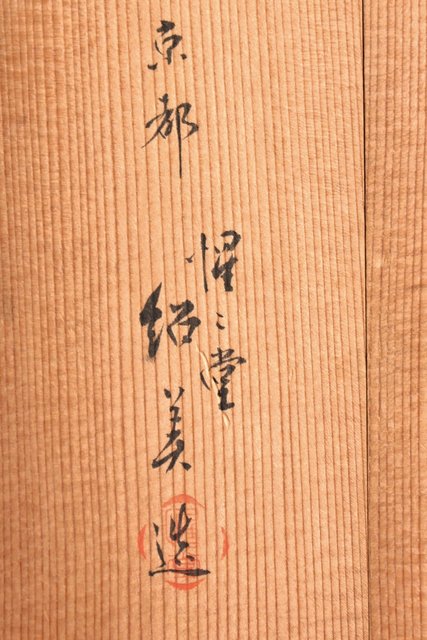 京都
惺々堂
紹美造